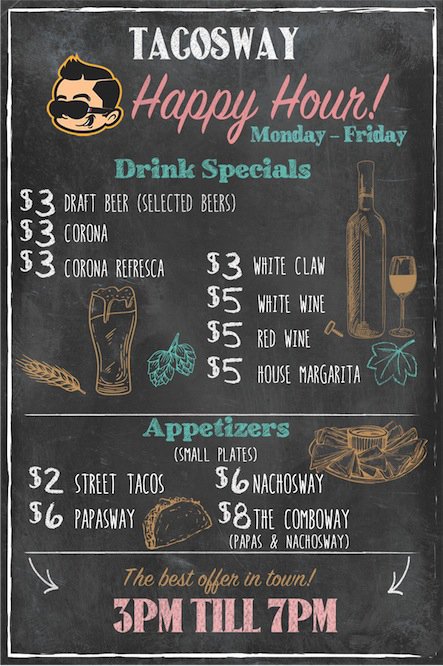 TACOSWAY
Happy Hour!
Monday - Friday
Drink Specials
$3 DRAFT BEER (SELECTED BEERS)
$3 CORONA
$3 CORONA REFRESCA
$3 WHITE CLAW
$5 WHITE WINE
$5 RED WINE
$5 HOUSE MARGARITA
Appetizers
(SMALL PLATES)
$2 STREET TACOS
$6 PAPASWAY
$6 NACHOSWAY
$8 THE COMBOWAY
(PAPAS & NACHOSWAY)
The best offer in town!
3PM TILL 7PM